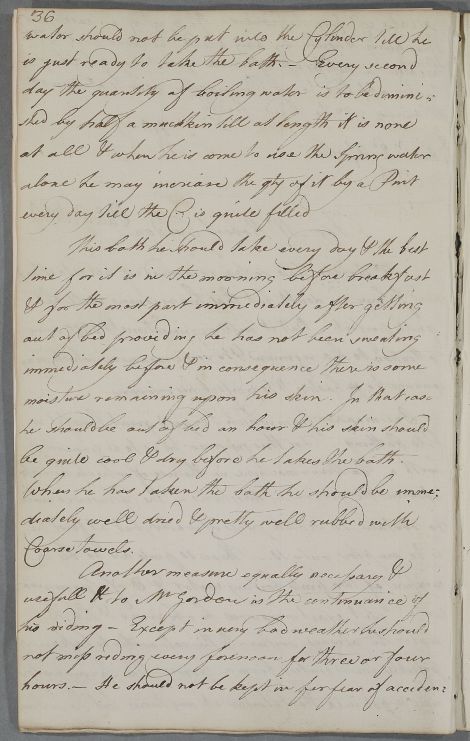 36
water should not be put into the Cylinder till he
is just ready to take the bath. – Every second
day the quantity of boiling water is to be dimini =
shed by half a mutchkin till at length it is none
at all & when he is come to use the Spring water
alone he may increase the qty of it by a Pint
every day till the C is quite filled
This bath he should take every day & the best
time for it is in the mooring before breakfast
& for the most part immediately after getting
out of bed providing he has not been sweating
immediately before & in consequence there is some
moisture remaining upon his skin. In that case
he should be out of bed an hour & his skin should
be quite cool & dry before he takes the bath.
When he has taken the bath he should be imme:
diately well dried & pretty well rubbed with
Coarse towels.
Another measure equally necessary &
usefull to Mr Gordon is the continuance of
his riding – Except in very bad weather he should
not miss riding every forenoon for three or four
hours. – He should not be kept in for fear of acciden: